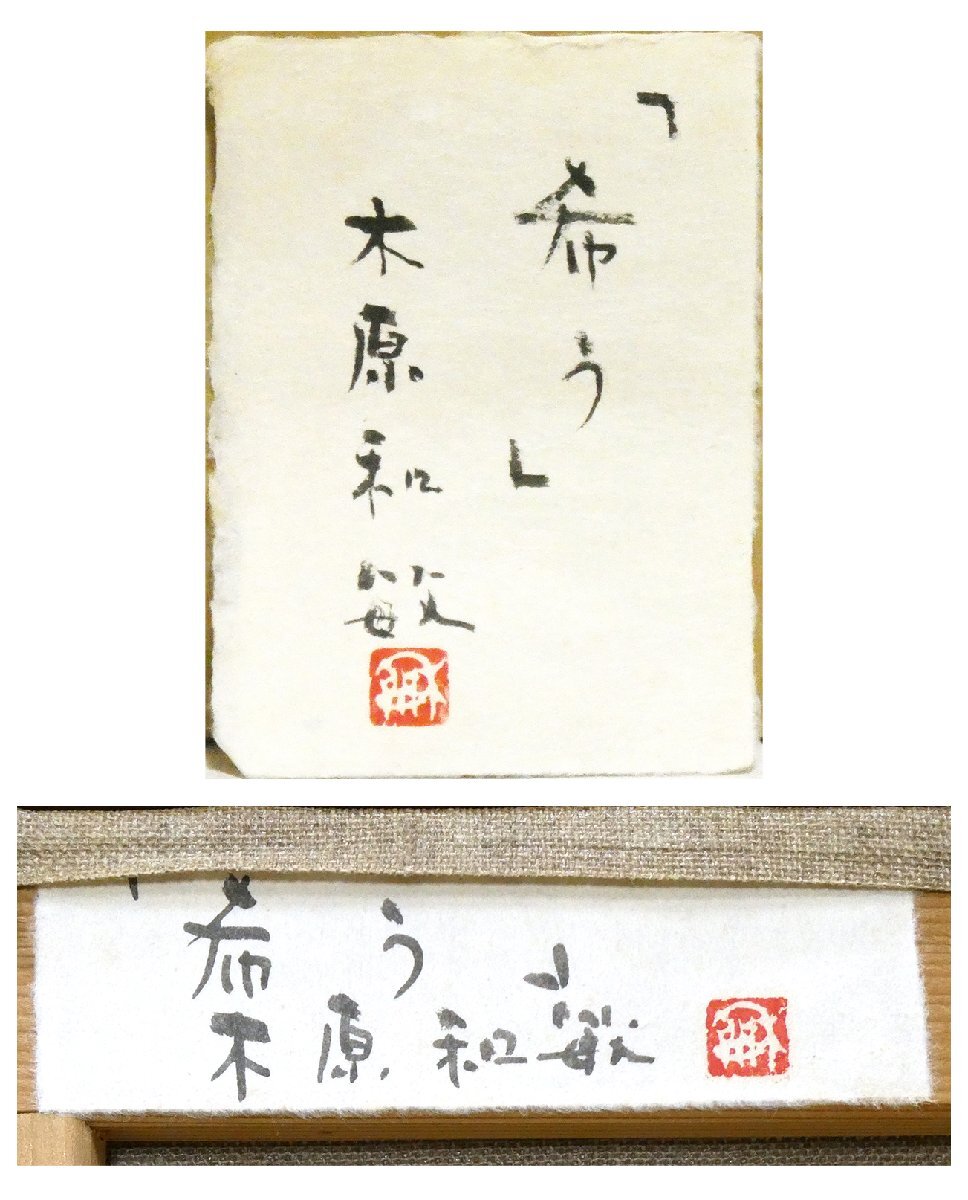 「希う」
木原和敏
「希う」
木原和敏